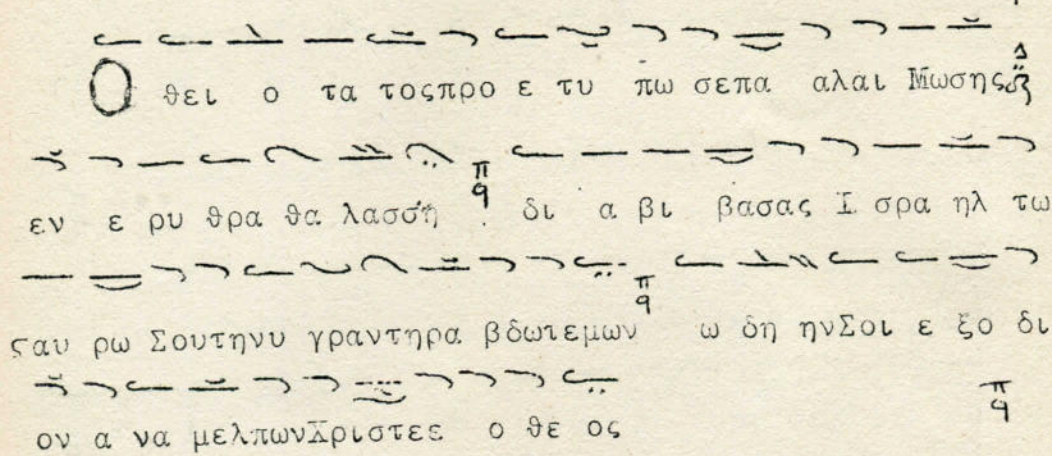 Ο θει ο τα τοςπρο ε τυ πω σεπα αλαι Μωσης
εν ε ρυ θρα θα λασση δι α βι βασας Ι σρα ηλ τω
ςαυ ρω Σουτηνυ γραντηρα βδωτεμων ω δη ηνΣοι ε ξο δι
ον α να μελπωνΧριστεε ο θε ος